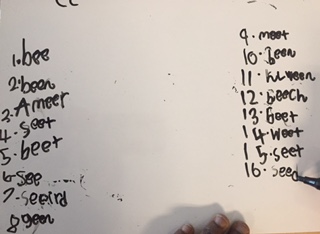 1. bee
2. been
3. A meer
4. seet
5. beet
6. see
7. seeird
8 geen
9. meet
10. Been
11.
12. Beech
13. beet
14 weet
15. seet
16. seed